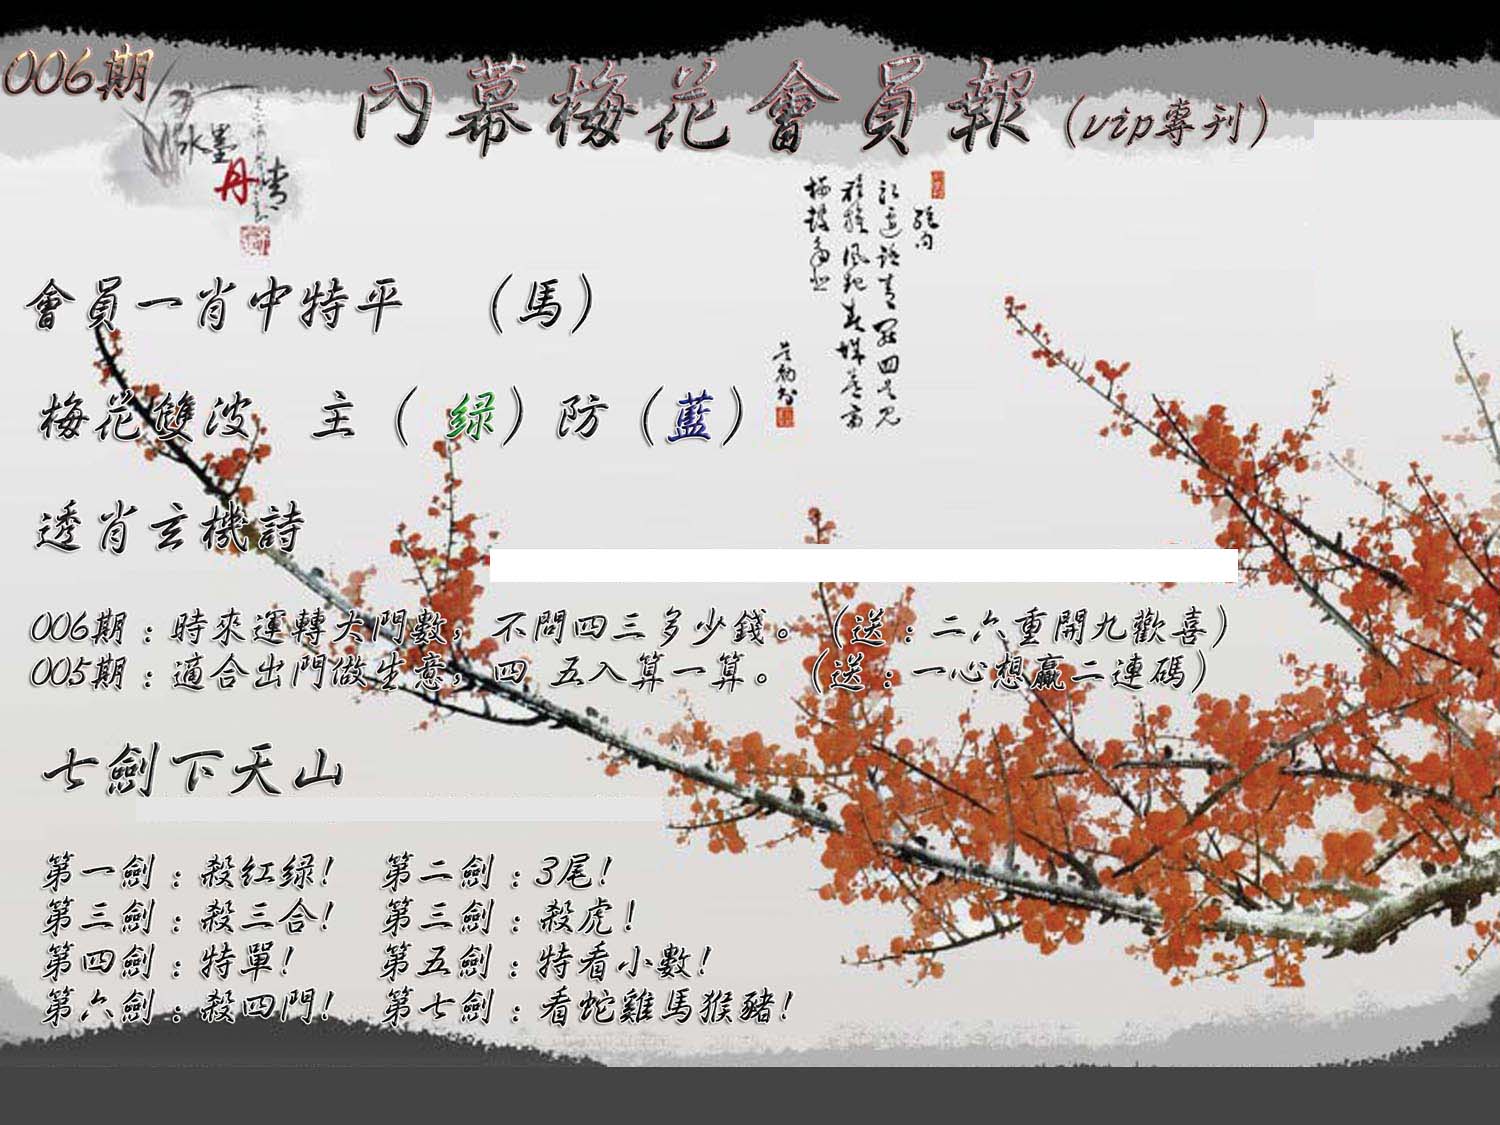 006期
內幕梅花會員報（vip專刊）
水墨
丹青
會員一肖中特平 （馬）
梅花雙波 主（ 绿）防（藍）
透肖玄機詩
006期：時來運轉大門數，不問四三多少錢。（送：二六重開九歡喜）
005期：適合出門做生意，四 五入算一算。（送：一心想贏二連碼）
七劍下天山
第一劍：殺红绿！ 第二劍：3尾！
第三劍：殺三合！ 第三劍：殺虎！
第四劍：特單！ 第五劍：特看小數！
第六劍：殺四門！ 第七劍：看蛇雞馬猴豬！